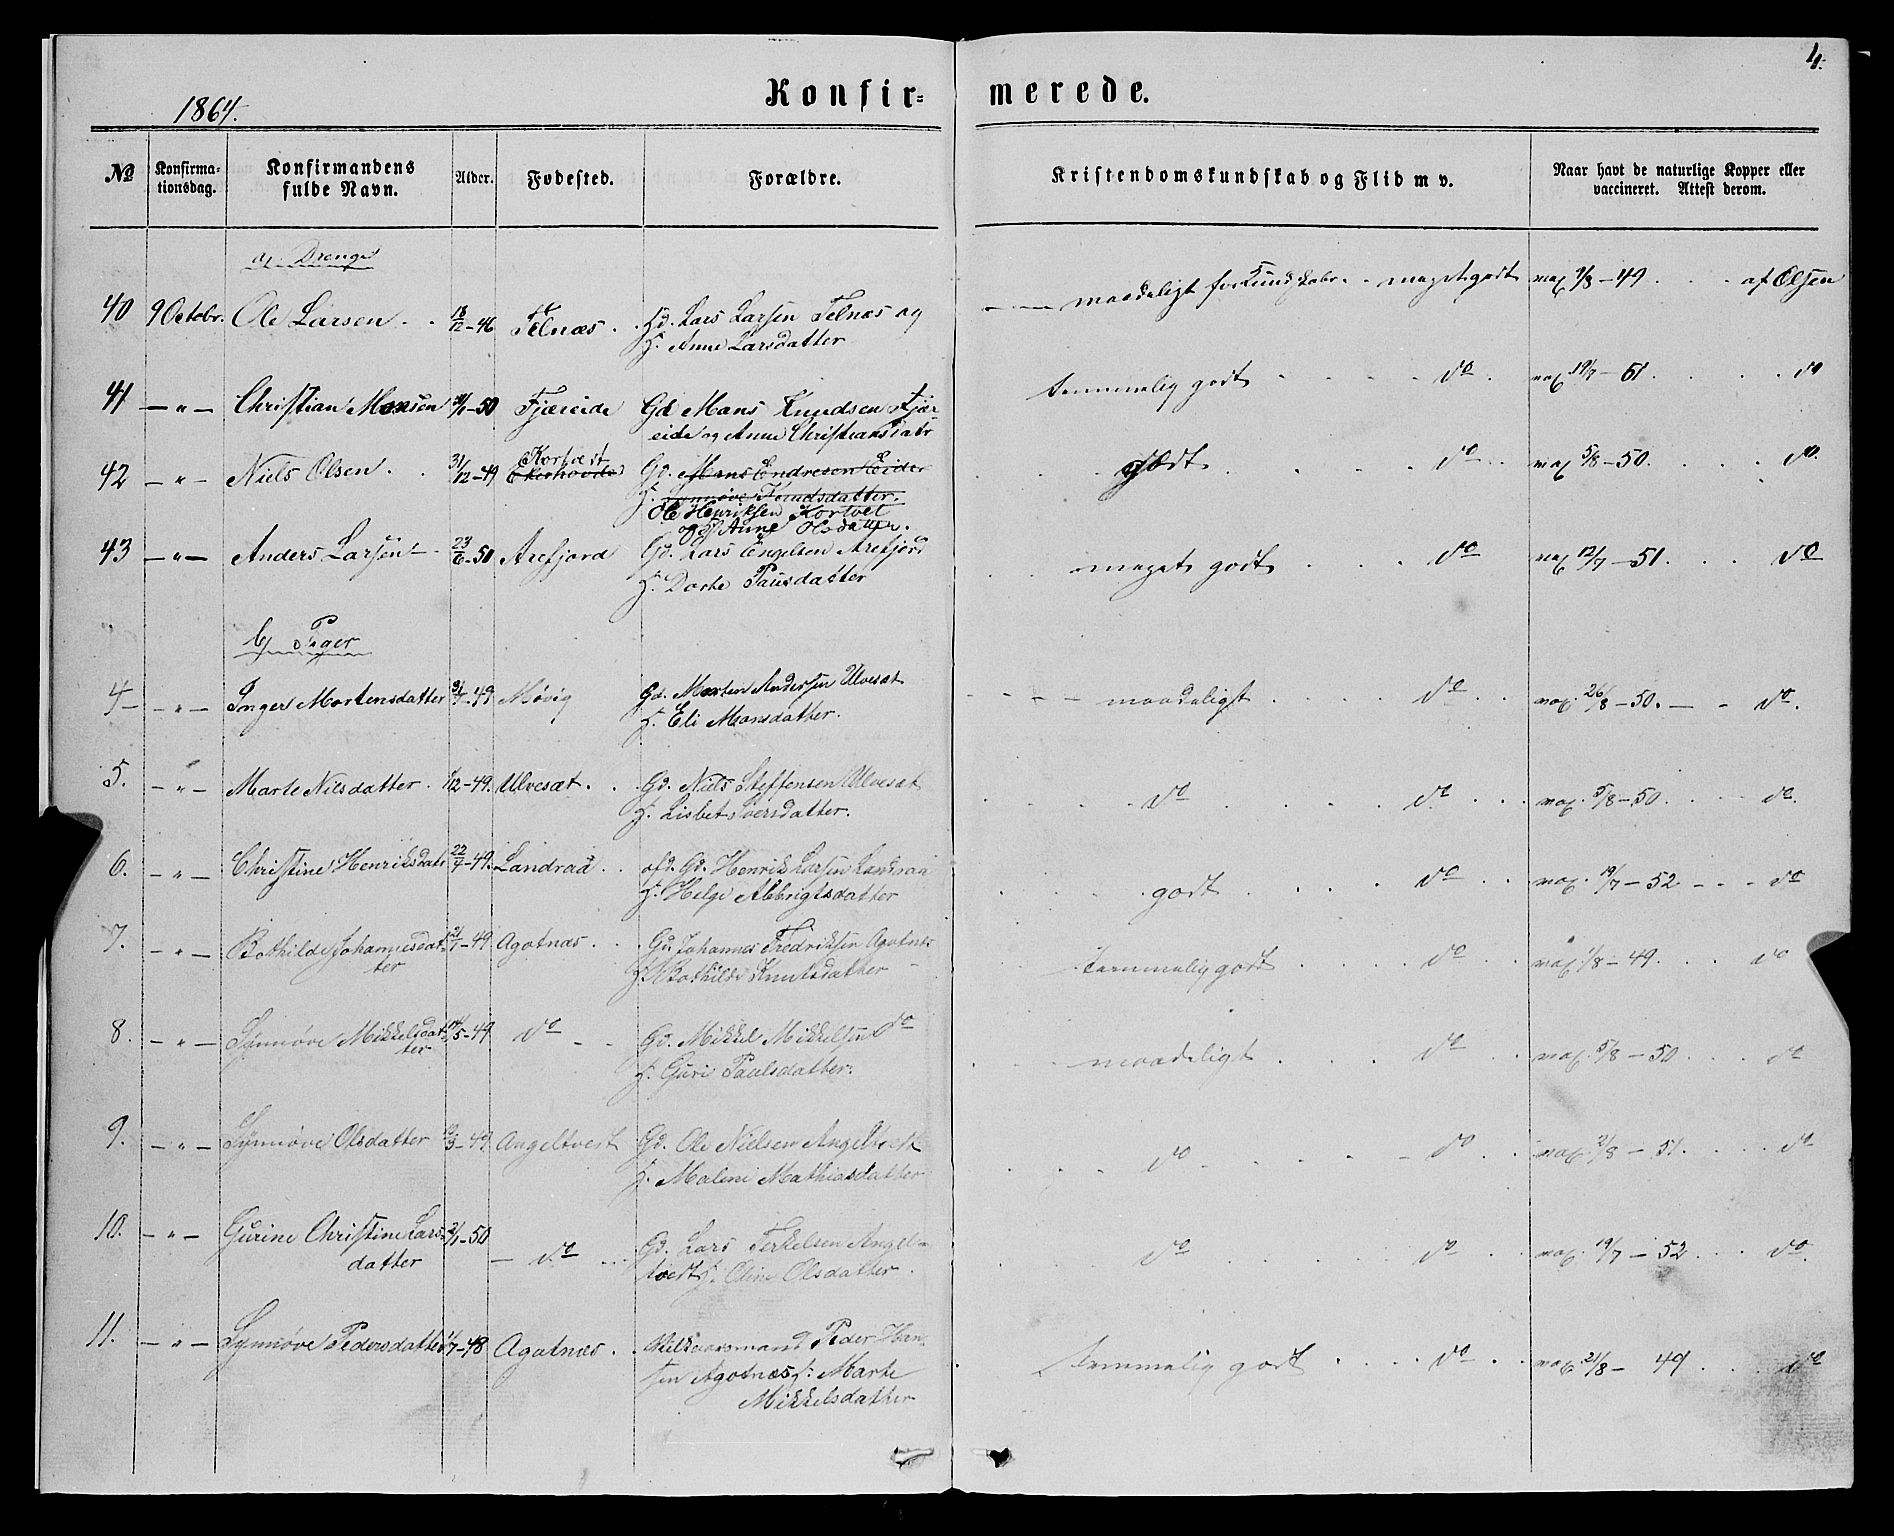 4.
1864.
Konfir=
merede.
No
Konfirma-
tionsdag.
Konfirmandens
fulde Navn.
Alder.
Fødested.
Forældre.
Kristendomskundskab og Flid m v.
Naar havt de naturlige Kopper eller
vaccineret. Attest derom.
a) Drenge
40 9 Octobr. Ole Larsen 18/12-46 Telnæs Gd. Lars Larsen Telnæs og
H. Anne Larsdatter
maadeligt for Kundskabr. - meget godt vax 9/8-49 af Olsen
41 - " - Christian Monsen -50 Fjæreide Gd Mans Knudsen Fjær
eide og Anne Christiansdatr
temmelig godt do vax 19/7-51 do
42 - " - Niels Olsen 31/12-49 Kortvet
Ekerhovde Gd. Mons Endresen Eide
H. Synnøve Knudsdatter.
Ole Henriksen Kortvet
og H Anne Olsdatter.
godt do vax 5/8-50 do
43 - " - Anders Larsen 23/6-50 Arefjord Gd. Lars Engelsen Arefjord
H. Dorte Paulsdatter
meget godt do vax 12/7-51 do
b) Piger
4 - " - Inger Mortensdatter -49 Møvig Gd. Morten Andersen Ulvesæt
H. Eli Monsdatter.
maadeligt do vax 26/8-50 do.
5. - " - Marte Nilsdatter /12-49. Ulvesæt Gd. Niels Steffensen Ulvesæt
H. Lisbet Iversdatter.
do do vax. 5/8-50 do.
6. - " - Christine Henriksdatr 22/7-49. Landraa afd. Gd. Henrik Larsen Landraa
H. Helge Albrigtsdatter
godt do vax. 19/7-52 do
7. - " - Bothilde Johannesdat-
ter 21/7-49 Agotnæs Gd. Johannes Fredriksen Agotnæs
H. Bothilde Knutsdatter
temmelig godt do vax 1/8-49 do
8. - " - Synnøve Mikkelsdat
ter 14/5-49 do Gd. Mikkel Mikkelsen do
H. Guri Paulsdatter.
maadeligt do vax. 5/8-50 do
9. - " - Synnøve Olsdatter /3-49 Angeltveit Gd. Ole Nielsen Angeltvedt
H. Malene Mathiasdatter
do do vax. 2/8-51 do
10. - " - Gurine Christine Lars-
datter 2/1-50 do Gd. Lars Terkelsen Angel-
tvedt H. Oline Olsdatter.
do do vax. 19/7-52 do.
11. - " - Synnøve Pedersdatter /7-48 Agotnæs Vilkaarsmand Peder Han
sen Agotnæs H. Marte
Mikkelsdatter
temmelig godt do vax 21/8-49 do